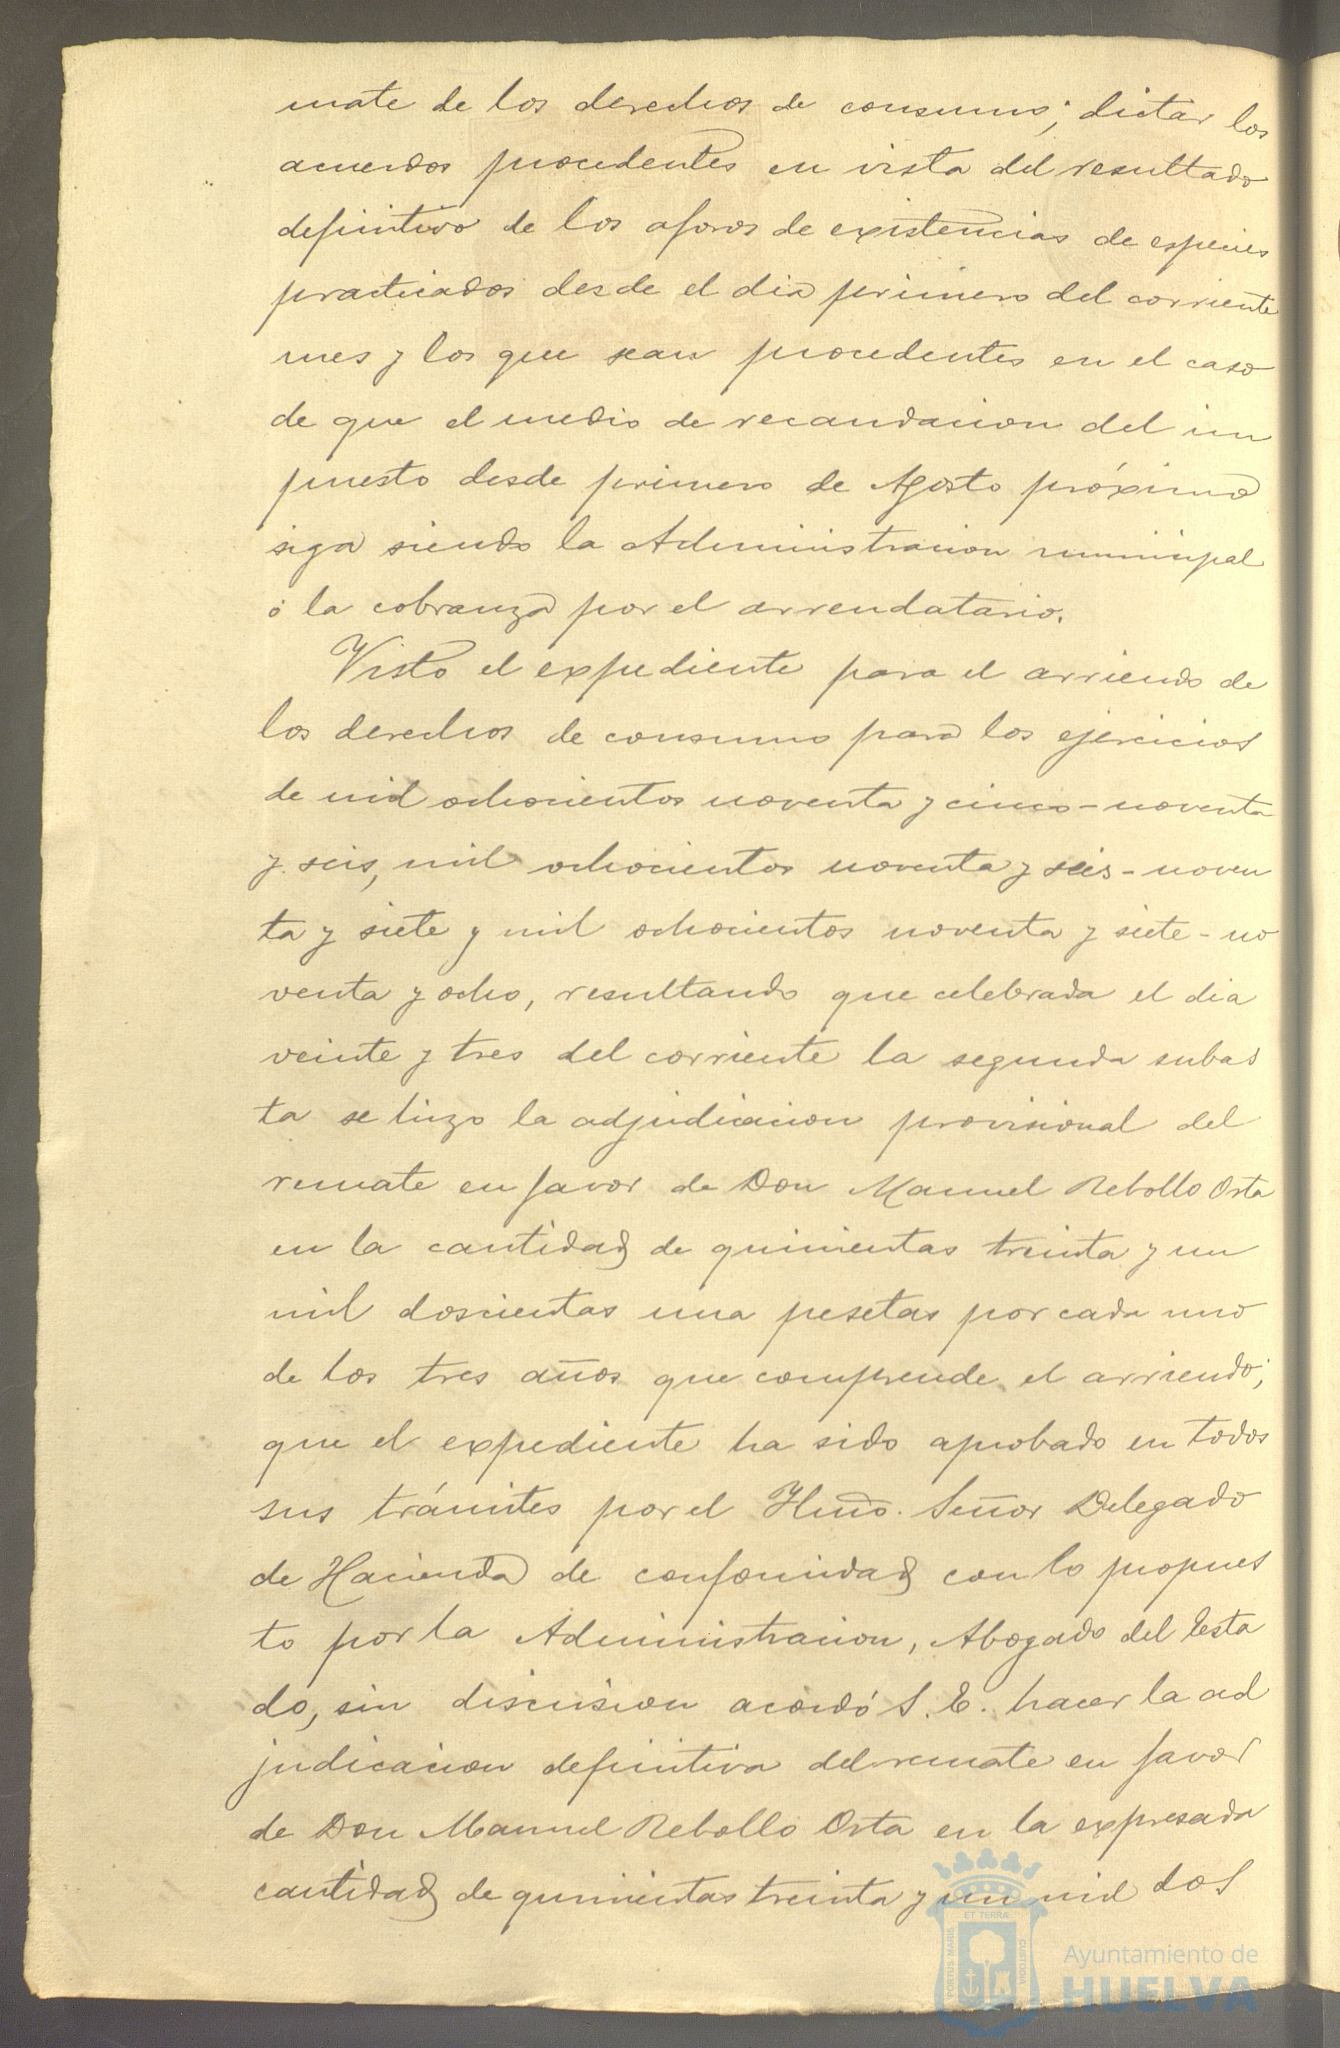 mate de los derechos de consumo; dictar los
acuerdos procedentes en vista del resultado
definitivo de los aforos de existencias de especies
practicados desde el dia primero del corriente
mes y los que sean procedentes en el caso
de que el medio de recaudacion del im
puesto desde primero de Agosto próximo
siga siendo la Administracion municipal
ó la cobranza por el arrendatario.
Visto el expediente para el arriendo de
los derechos de consumo para los ejercicios
de mil ochocientos noventa y cinco-noventa
y seis, mil ochocientos noventa y seis-noven
ta y siete y mil ochocientos noventa y siete-no
venta y ocho, resultando que celebrada el dia
veinte y tres del corriente la segunda subas
ta se hizo la adjudicacion provisional del
remate en favor de Don Manuel Rebollo Orta
en la cantidad de quinientas treinta y un
mil doscientas una pesetas por cada uno
de los tres años que comprende el arriendo;
que el expediente ha sido aprobado en todos
sus trámites por el Ylmo. Señor Delegado
de Hacienda de conformidad con lo propues
to por la Administracion, Abogado del Esta
do, sin discusion acordó S. E. hacer la ad
judicacion definitiva del remate en favor
de Don Manuel Rebollo Orta en la expresada
cantidad de quinientas treinta y un mil dos
PORTUS MARIS ET TERRÆ CUSTODIA
Ayuntamiento de
HUELVA